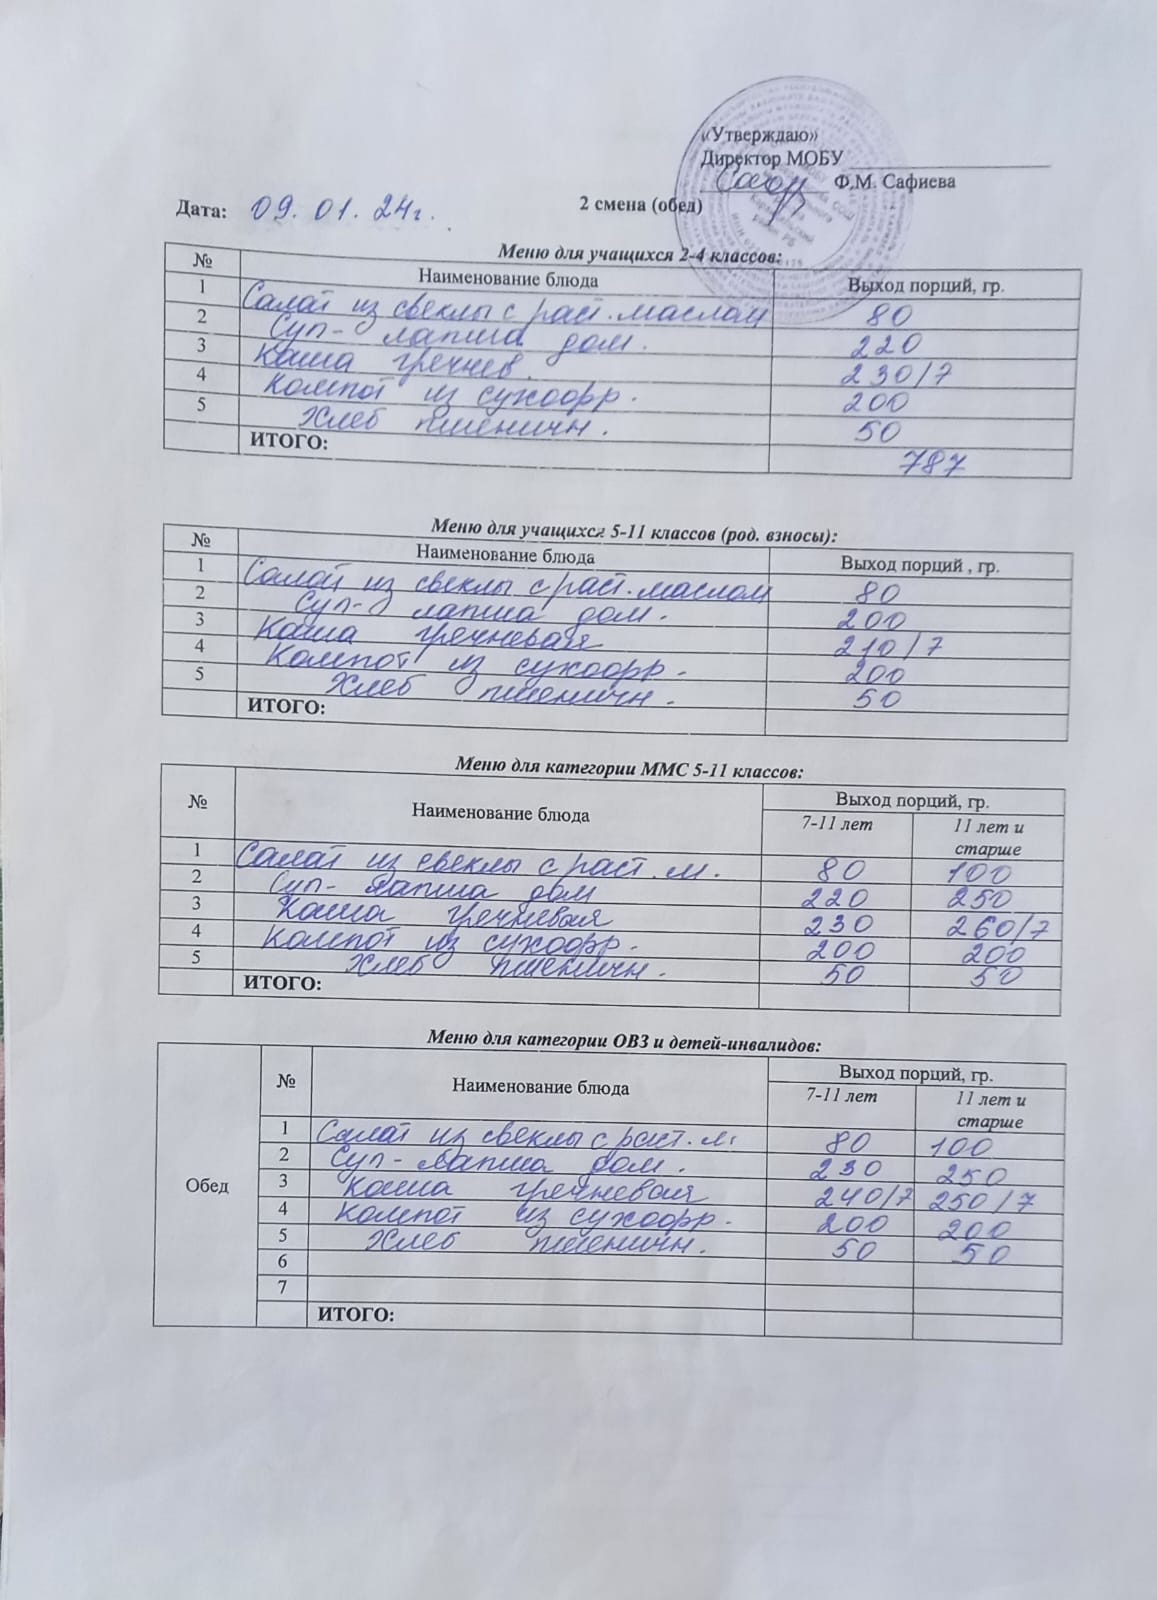 «Утверждаю»
Директор МОБУ
Ф.М. Сафиева
Дата: 09.01.24г. 2 смена (обед)
Меню для учащихся 2-4 классов:
№ Наименование блюда Выход порций, гр.
1 Салат из свеклы с раст. маслом 80
2 Суп- лапша дом. 220
3 Каша гречнев. 230/7
4 Компот из сухофр. 200
5 Хлеб пшеничн. 50
ИТОГО: 787
Меню для учащихся 5-11 классов (род. взносы):
№ Наименование блюда Выход порций , гр.
1 Салат из свеклы с раст. маслом 80
2 Суп- лапша дом. 200
3 Каша гречневая 210/7
4 Компот из сухофр. 200
5 Хлеб пшеничн. 50
ИТОГО:
Меню для категории ММС 5-11 классов:
№ Наименование блюда Выход порций, гр.
7-11 лет 11 лет и
старше
1 Салат из свеклы с раст. м. 80 100
2 Суп- лапша дом 220 250
3 Каша гречневая 230 260/7
4 Компот из сухофр. 200 200
5 Хлеб пшеничн. 50 50
ИТОГО:
Меню для категории ОВЗ и детей-инвалидов:
№ Наименование блюда Выход порций, гр.
7-11 лет 11 лет и
старше
Обед
1 Салат из свеклы с раст. м. 80 100
2 Суп- лапша дом. 230 250
3 Каша гречневая 240/7 250/7
4 Компот из сухофр. 200 200
5 Хлеб пшеничн. 50 50
6
7
ИТОГО: